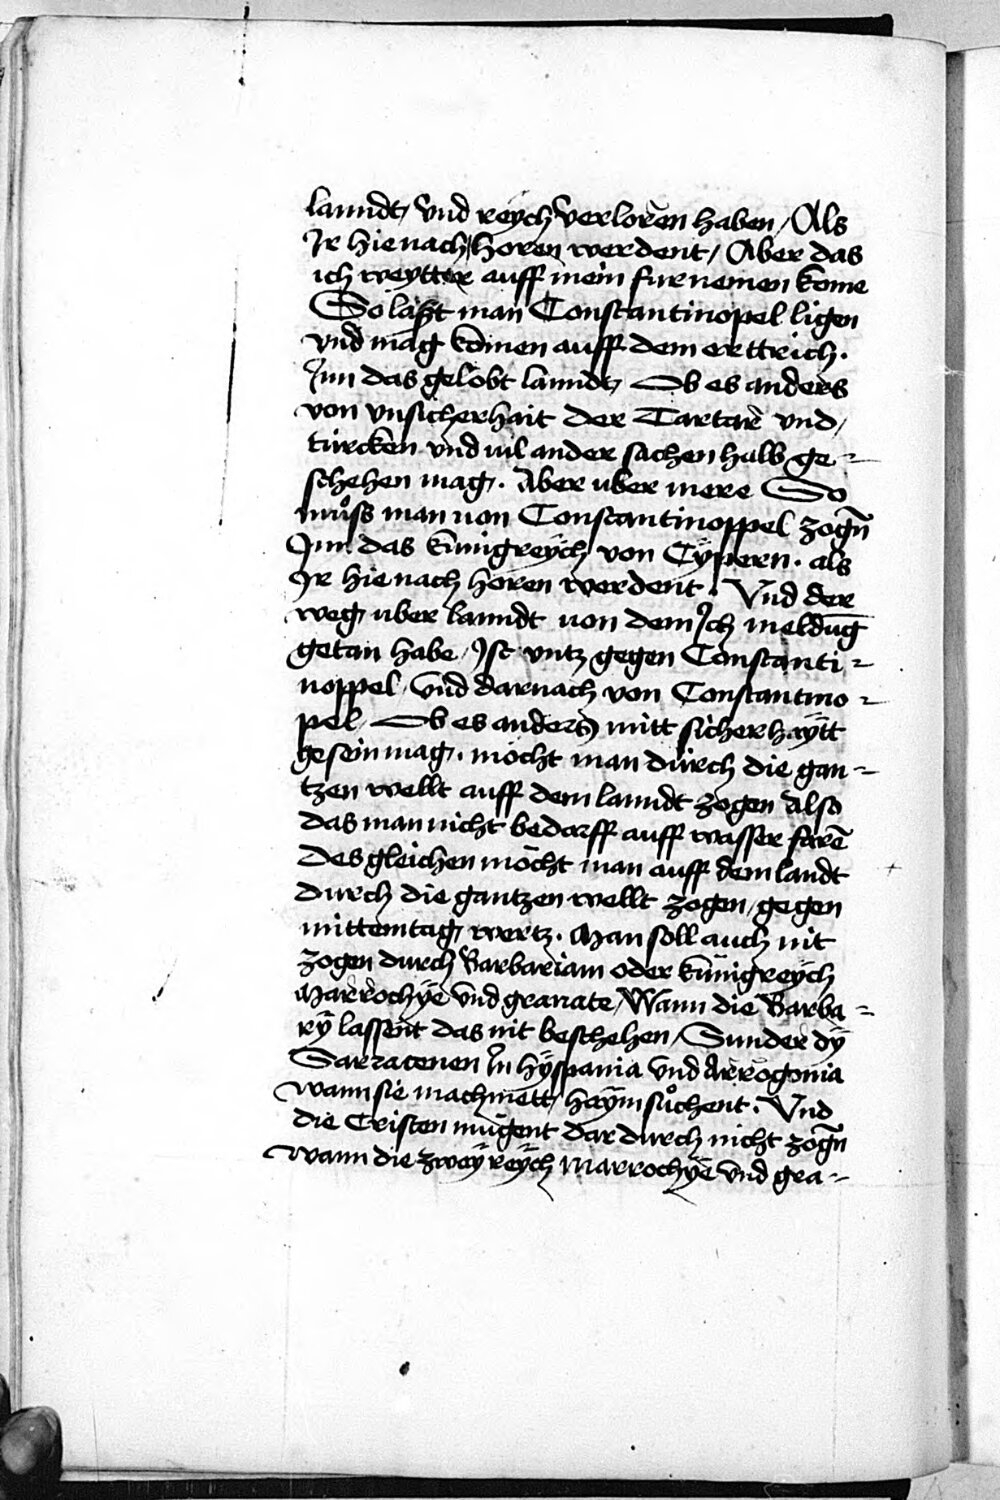 lanndt / vnd reych verloren haben / Als
Jr hie nach horen werdent / Aber das
ich weytter auff mein furnemen kome
So laßt man Constantinopel ligen
vnd mag komen auff dem erttrich .
Jnn das gelobt lanndt / Ob es anders
von vnsicherhait der Tartarē vnd /
türcken vnd uil ander sachen halb ge =
schehen mag . Aber uber mere So
muͦss man uon Constantinoppel zogn̄
Jnn das künigreÿch von Cÿpern . als
Jr hie nach horen werdent . Vnd der
weg uber lanndt uon dem Jch meldūg
getan habe / Jst vntz gegen Constanti =
noppel / vnd darnach von Constantino =
pel / Ob es anders mitt sicherhaÿtt
gesein mag . möcht man dürch die gan =
tzen wellt auff dem lanndt zogen Also
das man nicht bedorff auff wasser farē
Des gleichen möcht man auff dem landt
durch die gantzen wellt zogen / gegen
mittemtag wertz . Man soll auch nit
zogen durch Barbariam oder künigreÿch
Marrochÿe vnd granate / Wann die Barba =
rÿ lassent das nit beschehen / Sunder dÿ
Sarracenen Jn hÿspania vnd Arrogonia
wann sie machmett / haÿmsuͦchent . Vnd
die Cristen mügent dar durch nicht zogn̄
wann die zweÿ reÿch Marrochÿe vnd gra =